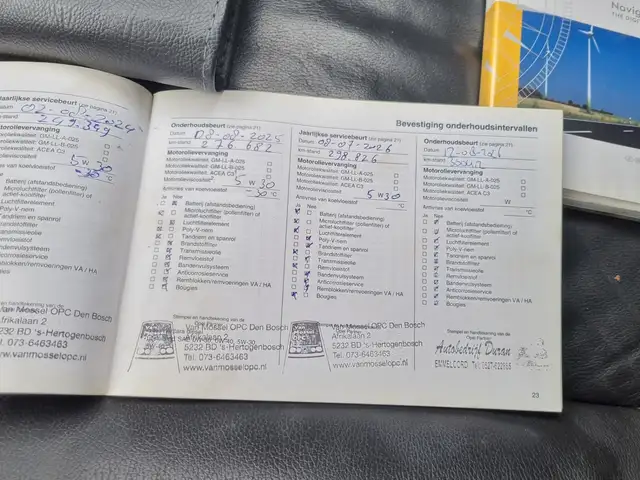 Navig
THE DIGI
Jaarlijkse servicebeurt (zie pagina 21)
Motorolievervanging
Motoroliekwaliteit: GM-LL-A-025
Motoroliekwaliteit: GM-LL-B-025
Motoroliekwaliteit: ACEA C3
5 W 30
Antivries van koelvloeistof
Batterij (afstandsbediening)
Microchiffilter (pollenfilter) of
actief-koolfilter
Luchtfilterelement
Poly-V-riem
Tandriem en spanrol
Brandstoffilter
Transmissieolie
Remvloeistof
Bandenvulsysteem
Anticorrosieservice
Remblokken/remvoeringen VA / HA
Bougies
Stempel en handtekening van de
Van Mossel OPC Den Bosch
Afrikalaan 2
5232 BD 's-Hertogenbosch
Tel. 073-6463463
www.vanmosselopc.nl
Onderhoudsbeurt (zie pagina 21)
Datum 08-08-2025
km-stand 276 682
Motorolievervanging
Motoroliekwaliteit: GM-LL-A-025
Motoroliekwaliteit: GM-LL-B-025
Motoroliekwaliteit: ACEA C3
5 W 30
Antivries van koelvloeistof -30 °C
Ja Nee
Batterij (afstandsbediening)
Microchiffilter (pollenfilter) of
actief-koolfilter
Luchtfilterelement
Poly-V-riem
Tandriem en spanrol
Brandstoffilter
Transmissieolie
Remvloeistof
Bandenvulsysteem
Anticorrosieservice
Remblokken/remvoeringen VA / HA
Bougies
Stempel en handtekening van de
Opel Partner
Van Mossel OPC Den Bosch
5232 BD 's-Hertogenbosch
Tel. 073-6463463
www.vanmosselopc.nl
Bevestiging onderhoudsintervallen
Jaarlijkse servicebeurt (zie pagina 21)
Datum 08-07-2026
km-stand 298.826
Motorolievervanging
Motoroliekwaliteit: GM-LL-A-025
Motoroliekwaliteit: GM-LL-B-025
Motoroliekwaliteit: ACEA C3
5 W 30
Antivries van koelvloeistof °C
Ja Nee
Batterij (afstandsbediening)
Microchiffilter (pollenfilter) of
actief-koolfilter
Luchtfilterelement
Poly-V-riem
Tandriem en spanrol
Brandstoffilter
Transmissieolie
Remvloeistof
Bandenvulsysteem
Anticorrosieservice
Remblokken/remvoeringen VA / HA
Bougies
Stempel en handtekening van de
Opel Partner
Van Mossel OPC Den Bosch
Afrikalaan 2
5232 BD 's-Hertogenbosch
Tel. 073-6463463
www.vanmosselopc.nl
Onderhoudsbeurt (zie pagina 21)
Datum
km-stand
Motorolievervanging
Motoroliekwaliteit: GM-LL-A-025
Motoroliekwaliteit: GM-LL-B-025
Motoroliekwaliteit: ACEA C3
Motorolieviscositeit W
Antivries van koelvloeistof °C
Ja Nee
Batterij (afstandsbediening)
Microchiffilter (pollenfilter) of
actief-koolfilter
Luchtfilterelement
Poly-V-riem
Tandriem en spanrol
Brandstoffilter
Transmissieolie
Remvloeistof
Bandenvulsysteem
Anticorrosieservice
Remblokken/remvoeringen VA / HA
Bougies
Stempel en handtekening van de
Opel Partner
Autobedrijf Duran
EMMELOORD
23